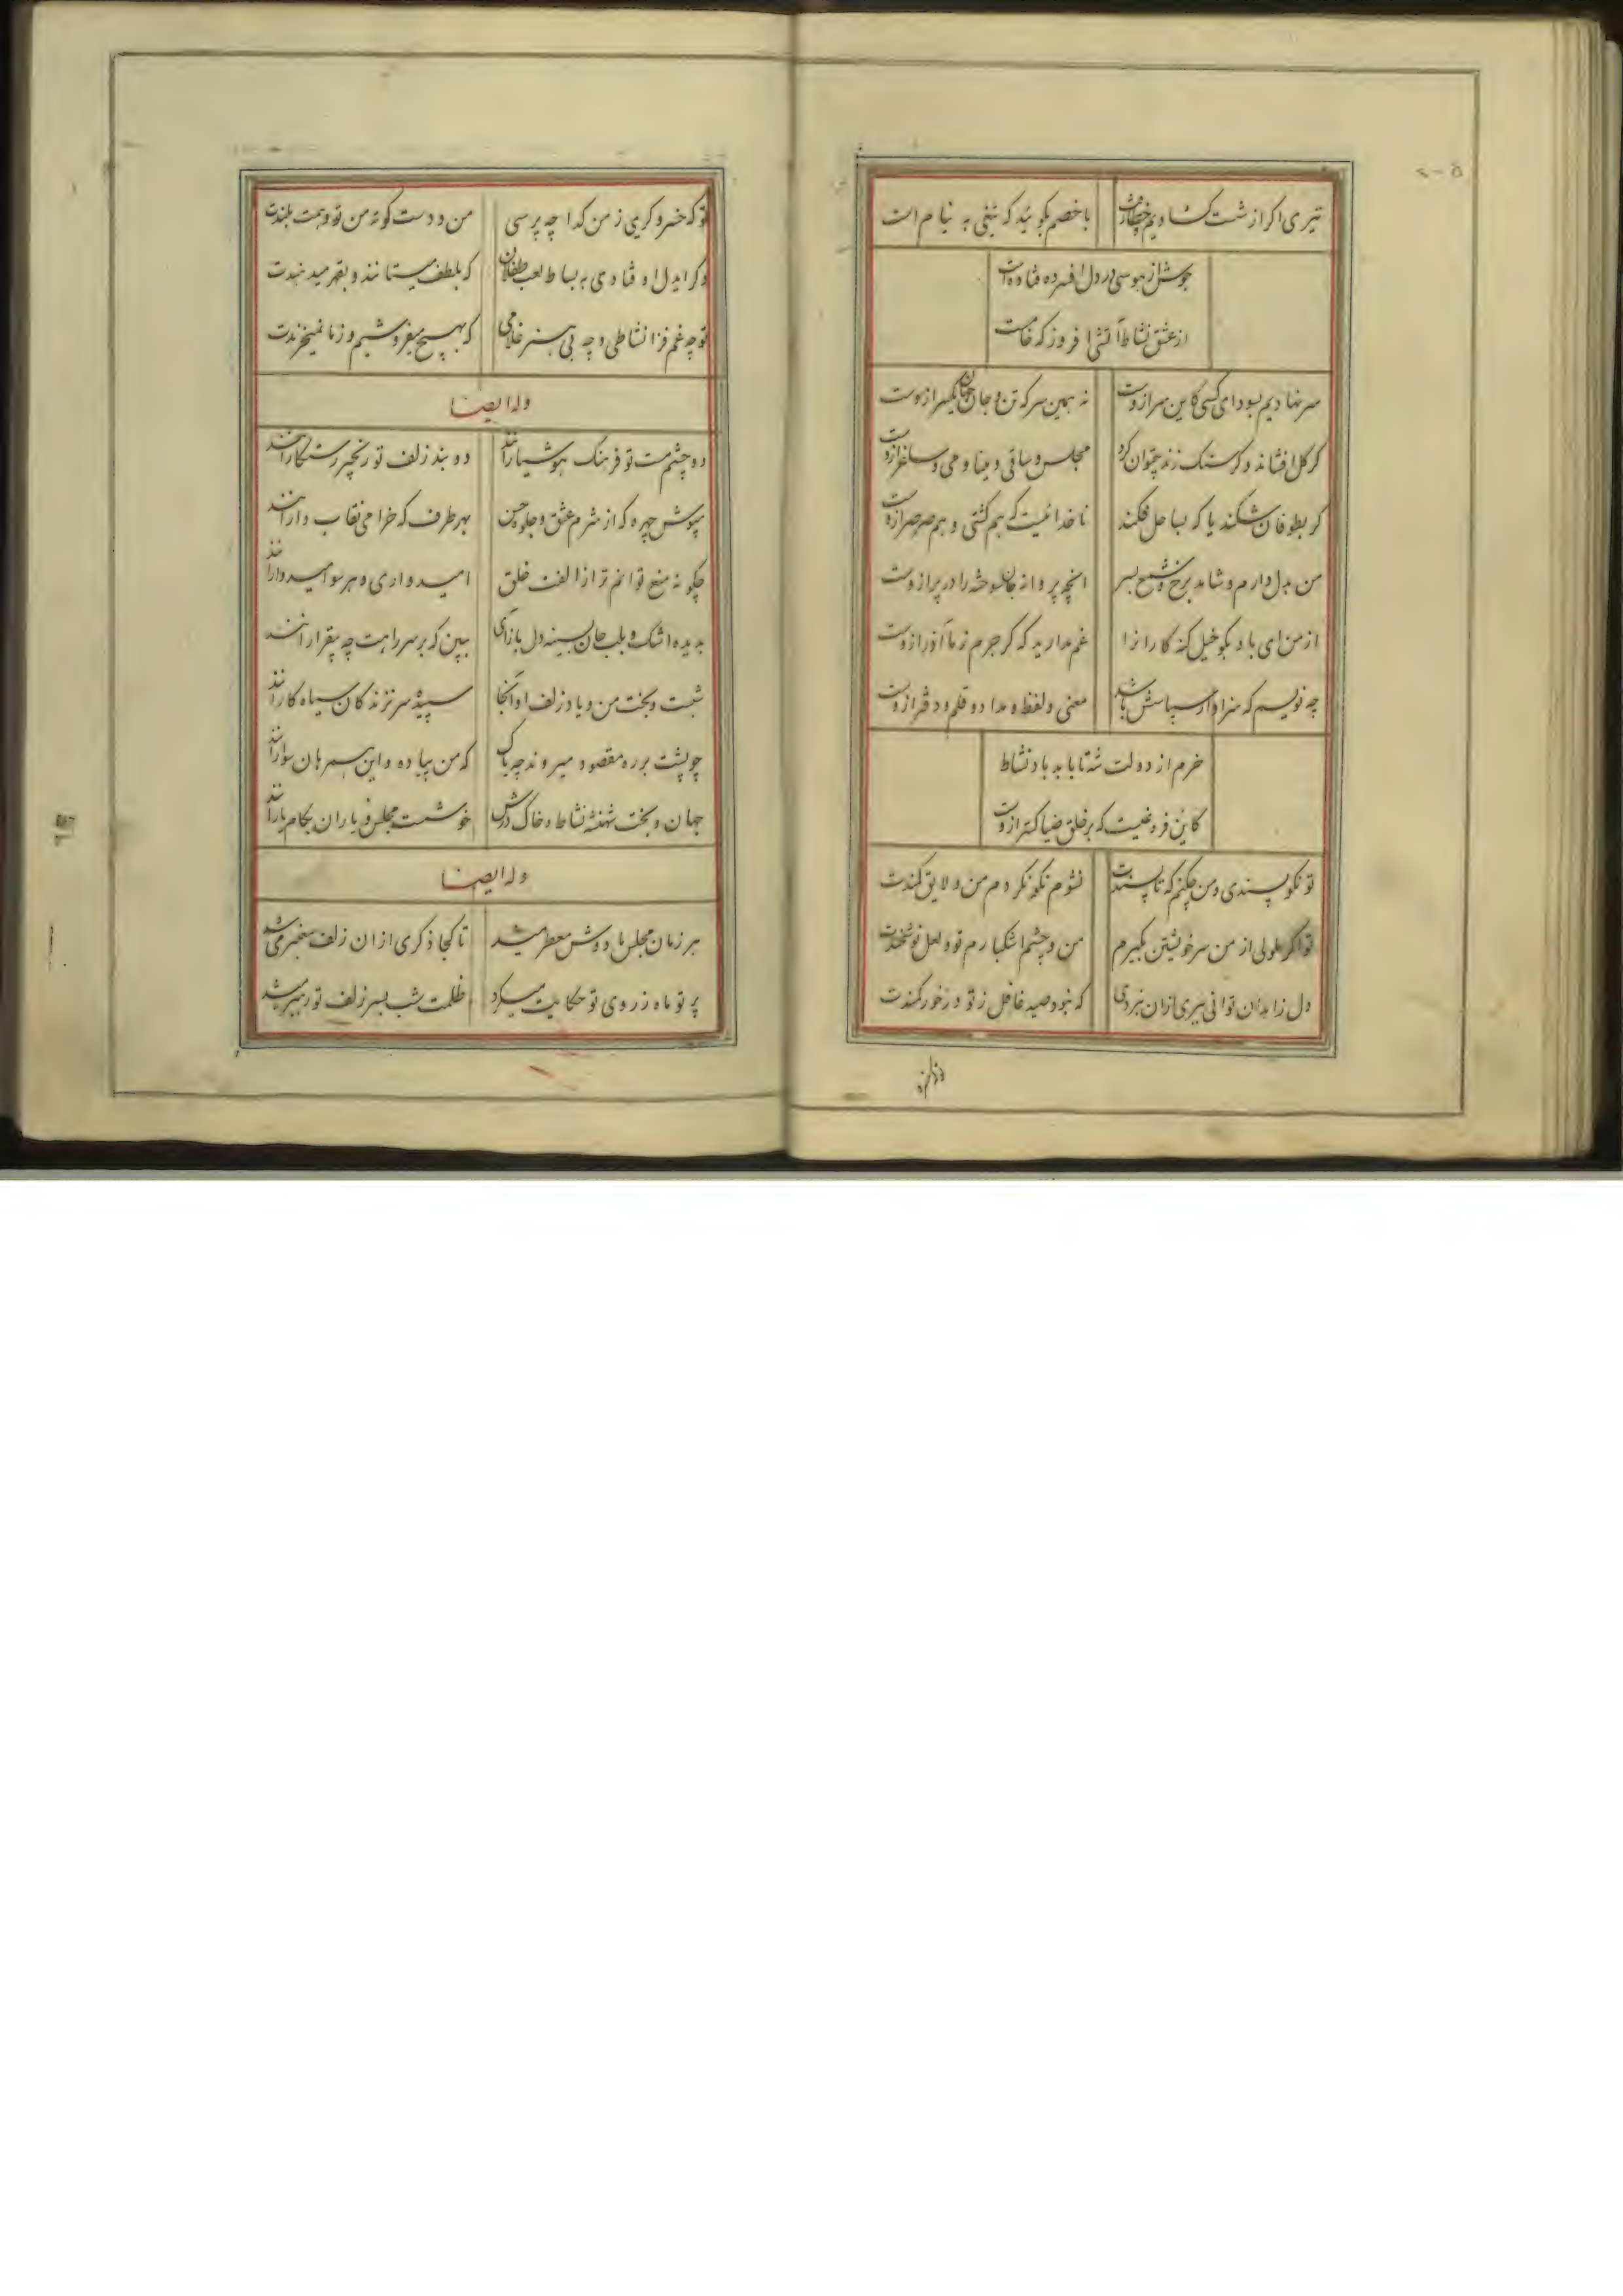 تیری اگر از شست گشادیم خطا رفت با خصم بگوئید که تیغی به نیام است
جوش از هوسی در دل افسرده فتاده است
از عشق نشاط آتشی افروز که خام است
سر نهادیم بسودای کسی کاین سر ازوست نه همین سر که تن و جان و جهان یکسر ازوست
کر کل افشاند و کر سنک زند چتوان کرد مجلس و ساقی و مینا و می و ساغر ازوست
کر بطوفان شکند یا که بساحل فکند ناخدائیست که هم کشتی و هم صرصر ازوست
من بدل دارم و شاهد برخ و شمع بسر انچه پروانه جان سوخته را در پر ازوست
از من ای باد بکو خیل کنه کارانرا غم مدارید که کر جرم ز ما آذر ازوست
چه نویسم که سزاوار سپاسش باشد معنی و لفظ و مداد و قلم و دفتر ازوست
خرم از دولت شه تا بابد باد نشاط
کاین فروغیست که بر خلق ضیا کستر ازوست
تو نکو پسندی و من چکنم که تا پسندت نشوم نکو نکردم من و لایق کمندت
تو اکر ملولی از من سر خویشتن بکیرم من و چشم اشکبارم تو و لعل نوشخندت
دل زاهدان توانی ببری ازان نبردی که نبود صید غافل ز تو در خور کمندت
تو که خسرو کریمی ز من کدا چه پرسی من و دست کوته من تو و همت بلندت
دکر ایدل اوفتادی به بساط لعب طفلان که بلطف میستانند و بقهر میدهندت
تو چه غم فزا نشاطی و چه بی هنر غلامی که بهیچ میفروشیم و ز ما نمیخرندت
وله ایضا
دو چشم مست تو فرهنک هوشیارانند دو بند زلف تو زنجیر رستکارانند
مپوش چهره که از شرم عشق و جلوه حسن بهر طرف که خرامی نقاب دارانند
چکونه منع توانم ترا ز الفت خلق امیدواری و هر سو امیدوارانند
بدیده اشک و بلب جان بسینه دل باز آی ببین که بر سر راهت چه بیقرارانند
شبست و بخت من و یاد زلف او آنجا سپیده سر نزند کان سیاه کارانند
چو پشت بر ره مقصود میروند چه باک که من پیاده و این همرهان سوارانند
جهان و بخت شهنشه نشاط و خاک درش خوشست مجلس و یاران بکام یارانند
وله ایضا
هر زمان مجلس ما دوش معطر میشد تا کجا ذکری ازان زلف معنبر میشد
پرتو ماه ز روی تو حکایت میکرد ظلمت شب بسر زلف تو رهبر میشد